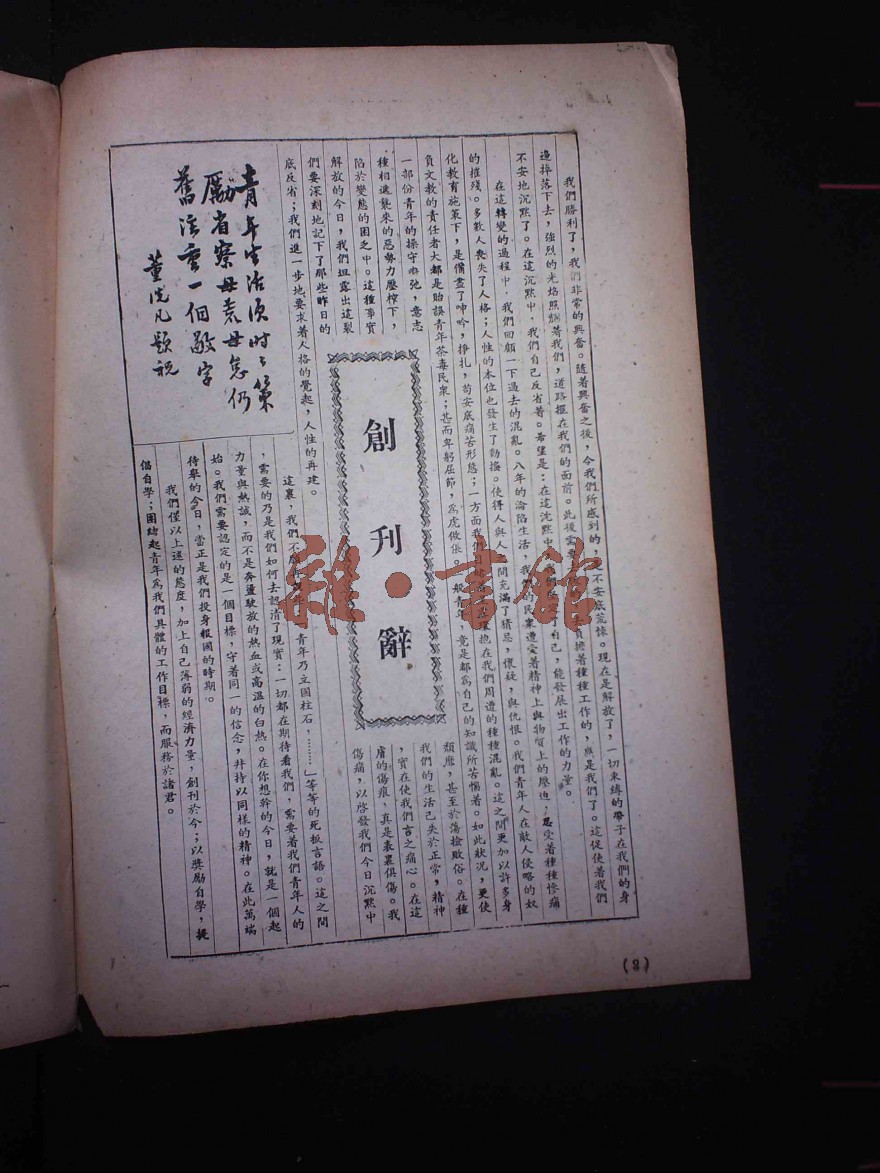 我們勝利了，我們非常的興奮。隨着興奮之後，令我們所感到的，是不安底荒悚。現在是解放了，一切束縛的帶子在我們的身
邊掉落下去，強烈的光焰照耀著我們，道路擺在我們的面前。此後需要 負擔著種種工作的，無是我們了。這促使着我們
不安地沉默了。在這沉默中，我們自己反省著。希望是：在這沈默中 自己，能發展出工作的力量。
在這轉變的過程中，我們回顧一下過去的混亂。八年的淪陷生活，我們的民衆遭受着精神上與物質上的壓迫，忍受着種種慘痛
的摧殘。多數人喪失了人格；人性的本位也發生了動搖。使得人與人之間充滿了猜忌，懷疑，與仇恨。我們青年人在敵人侵略的奴
化教育施策下，是備盡了呻吟，掙扎，苟安底痛苦形態；一方面我們 擁抱在我們周遭的種種混亂。這之間更加以許多身
負文教的責任者大都是貽誤青年荼毒民衆；甚而卑躬屈節，爲虎做倀。一般青年，竟是都爲自己的知識所苦惱着。如此狀況，更使
一部份青年的操守弛，意志
頹靡，甚至於傷撿敗俗。在種
種相遞襲來的惡勢力壓榨下，
我們的生活已失於正常，精神
陷於變態的困乏中。這種事實
，實在使我們言之痛心。在這
解放的今日，我們坦露出這裂
膚的傷痕，真是表裏俱傷。我
們要深刻地記下了那些昨日的
傷痛，以啓發我們今日沉默中
底反省；我們進一步地要求着人格的覺起，人性的再建。
創刊辭
這裏，我們不 青年乃立國柱石，………」等等的死板言語。這之間
，需要的乃是我們如何去認清了現實：一切都在期待看我們，需要着我們青年人的
力量與熱誠，而不是奔盪駛放的熱血或高溫的白熱。在你想幹的今日，就是一個起
始。我們需要認定的是一個目標，守著同一的信念，幷持以同樣的精神。在此萬端
待舉的今日，當正是我們投身報國的時期。
我們僅以上述的態度，加上自己薄弱的經濟力量，創刊於今；以獎勵自學，提
倡自學；團結起青年爲我們具體的工作目標，而服務於諸君。
青年生活須時々策
勵省察毋袁毋怠仍
舊注重一個敬字
董洗凡題祝
(3)
雜·書館